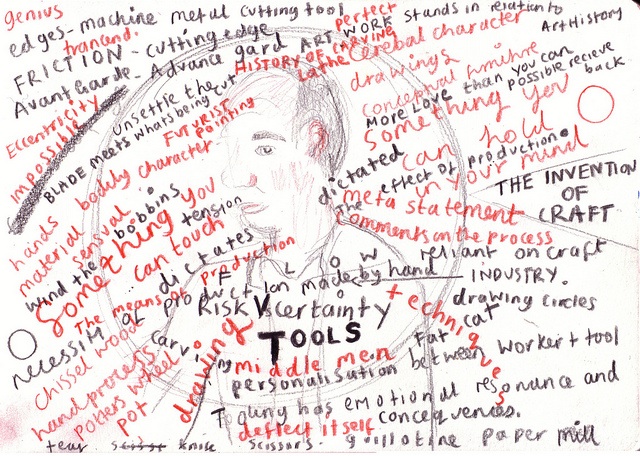 genius
edges - machine metal cutting tool
perfect
ART WORK stands in relation to
Art History
trancend.
FRICTION - cutting edge
HISTORY OF CARVING
Cerebral character
Avant Garde - Advance gard
Lathe
drawings
conceptual furniture
More Love than you can possible recieve back
Eccentricity
impossible
unsettle the
BLADE meets whats being cut
FUTURIST Painting
something you can hold in your mind
hands
bodily character
dictated
effect of production.
THE INVENTION
OF
CRAFT
material
sensual
bobbins
tension
the
meta statement
comments on the process
wind the
something you can touch
dictates
FLOW
reliant on craft
INDUSTRY.
The means of production
of production made by hand
drawing circles
Risk Vs certainty
technique
TOOLS
fat cat
necessity
Chissel wood
carving
drawing
middle men
between worker + tool
personalisation
hand process
potters wheel
pot
has emotional resonance and
consequences.
deflect itself
tear
knife
scissors
guillotine
paper mill